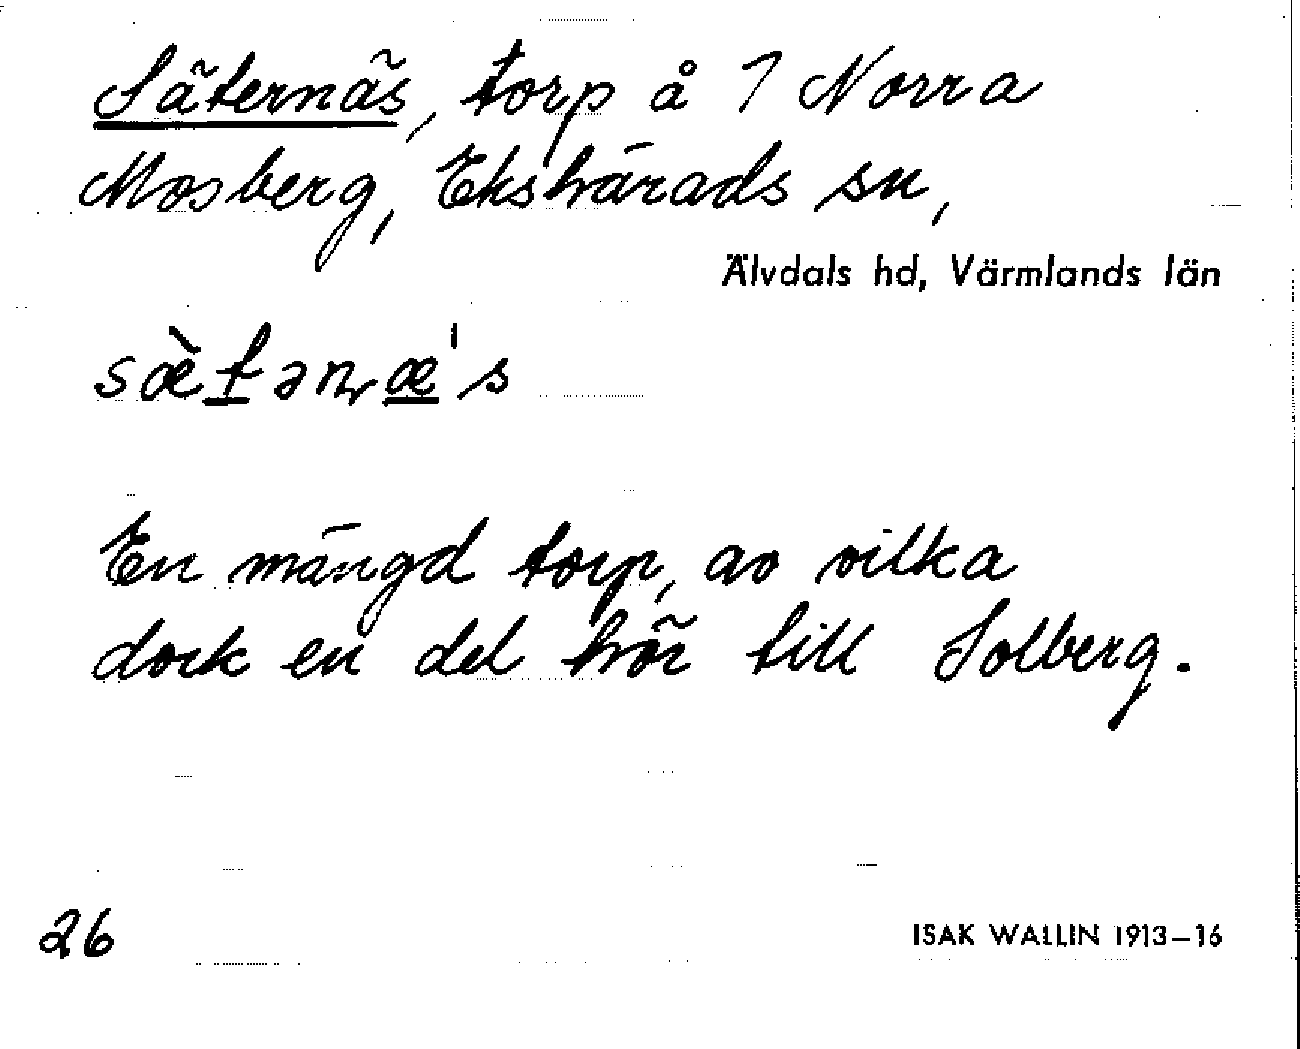 Säternäs, torp å 7 Norra
Mosberg, Ekshärads sn,
Älvdals hd, Värmlands län
sæ̀t̲ənᶉæ̲'s
En mängd torp, av vilka
dock en del hör till Solberg.
26
ISAK WALLIN 1913–16